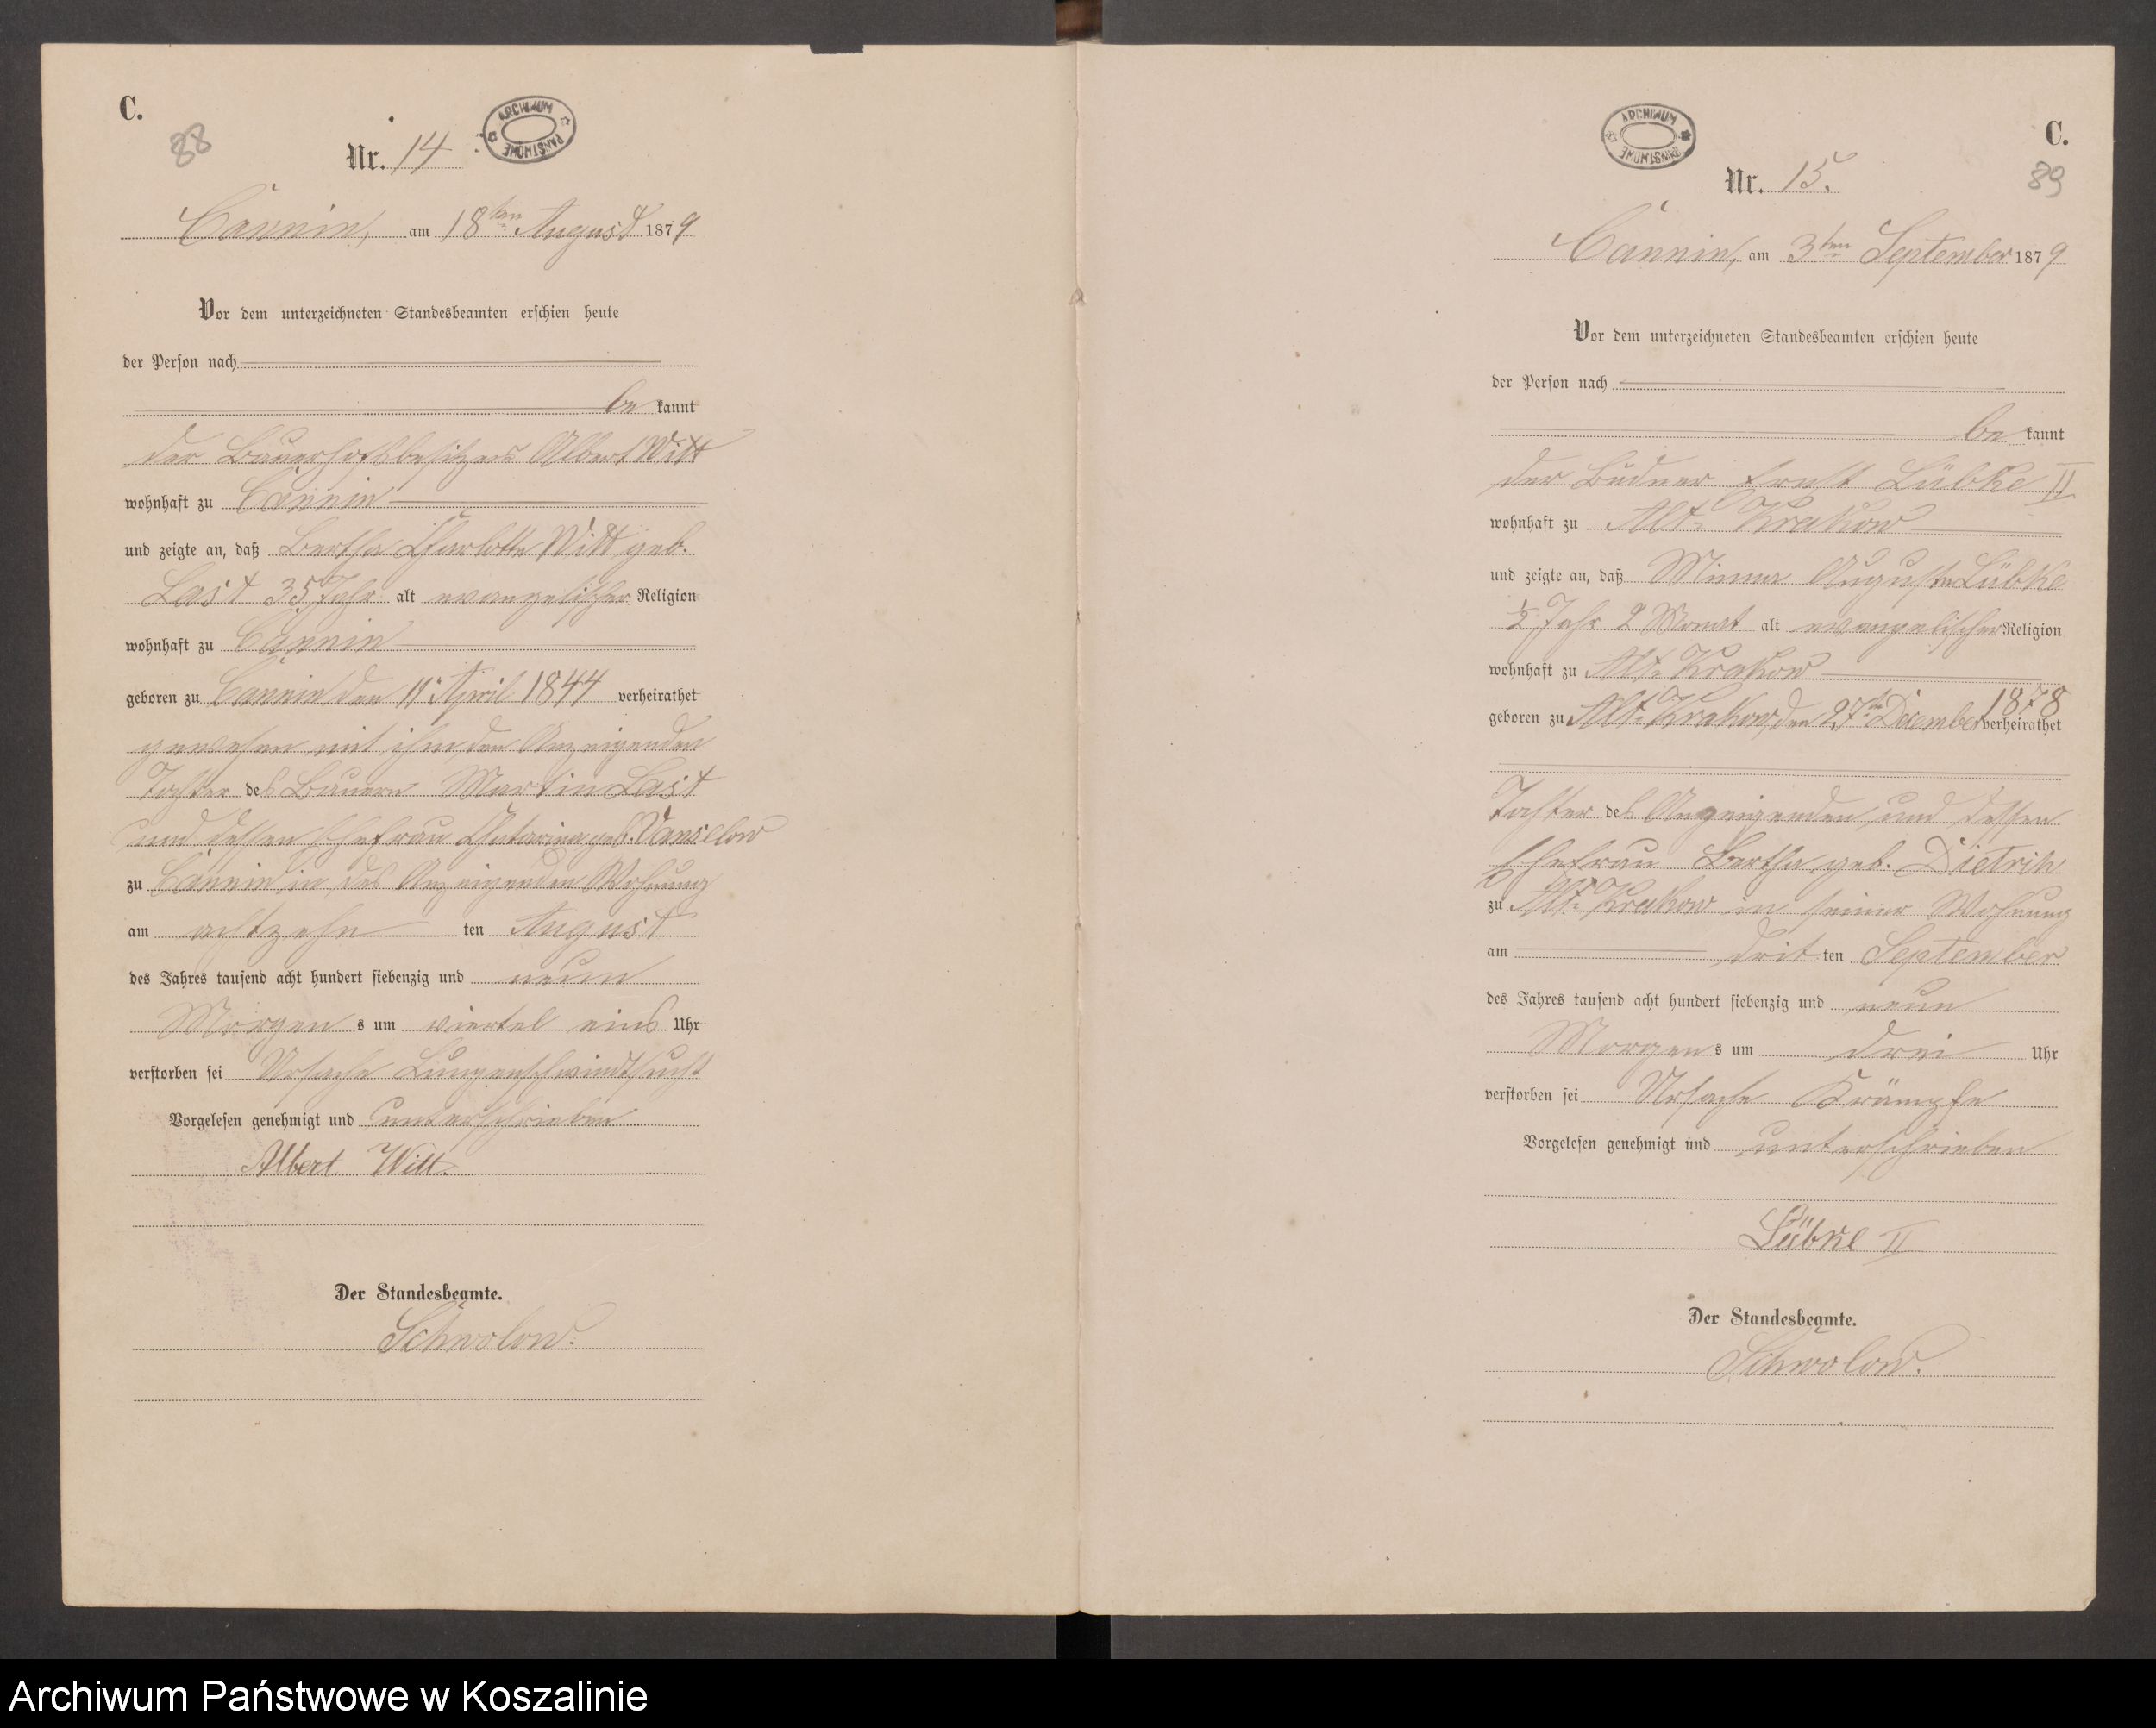 C.
88
Nr. 14
ARCHIWUM PAŃSTWOWE
Cannin, am 18ten August 1879
Vor dem unterzeichneten Standesbeamten erschien heute
der Person nach
be kannt
der Bauerhofsbesitzers Albert Witt
wohnhaft zu Cannin
und zeigte an, daß Bertha Charlotte Witt geb.
Last 35 Jahr alt evangelischer Religion
wohnhaft zu Cannin
geboren zu Cannin den 11. April 1844 verheirathet
gewesen mit ihm, den Anzeigenden
Tochter des Bauern Martin Last
und dessen Ehefrau Chatarina geb. Vanselow
zu Cannin in des Anzeigenden Wohnung
am achtzehn ten August
des Jahres tausend acht hundert siebenzig und neun
Morgen s um viertel eins Uhr
verstorben sei Ursache Lungenschwindtsucht
Vorgelesen genehmigt und unterschrieben
Albert Witt.
Der Standesbeamte.
Schwolow.
C.
89
ARCHIWUM PAŃSTWOWE
Nr. 15.
Cannin, am 3ten September 1879
Vor dem unterzeichneten Standesbeamten erschien heute
der Person nach
be kannt
der Büdner Ernst Lübke II
wohnhaft zu Alt-Krakow
und zeigte an, daß Minna Auguste Lübke
½ Jahr 2 Monat alt evangelischer Religion
wohnhaft zu Alt-Krakow
geboren zu Alt-Krakow, den 27ten December 1878 verheirathet
Tochter des Anzeigenden und dessen
Ehefrau Bertha geb. Dietrich
zu Alt-Krakow in seiner Wohnung
am drit ten September
des Jahres tausend acht hundert siebenzig und neun
Morgen s um drei Uhr
verstorben sei Ursache Krämpfe
Vorgelesen genehmigt und unterschrieben
Lübke II
Der Standesbeamte.
Schwolow.
Archiwum Państwowe w Koszalinie